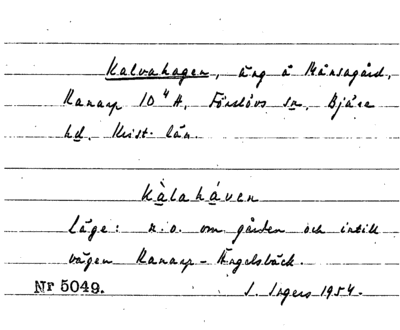 Kalvahagen, äng å Månsagård,
Ranarp 10⁴ H, Förslövs sn, Bjäre
hd. Krist. län.
Kàlaháven
Läge: n.o. om gården och intill
vägen Ranarp - Ängelsbäck.
Nr 5049. I. Ingers 1954.